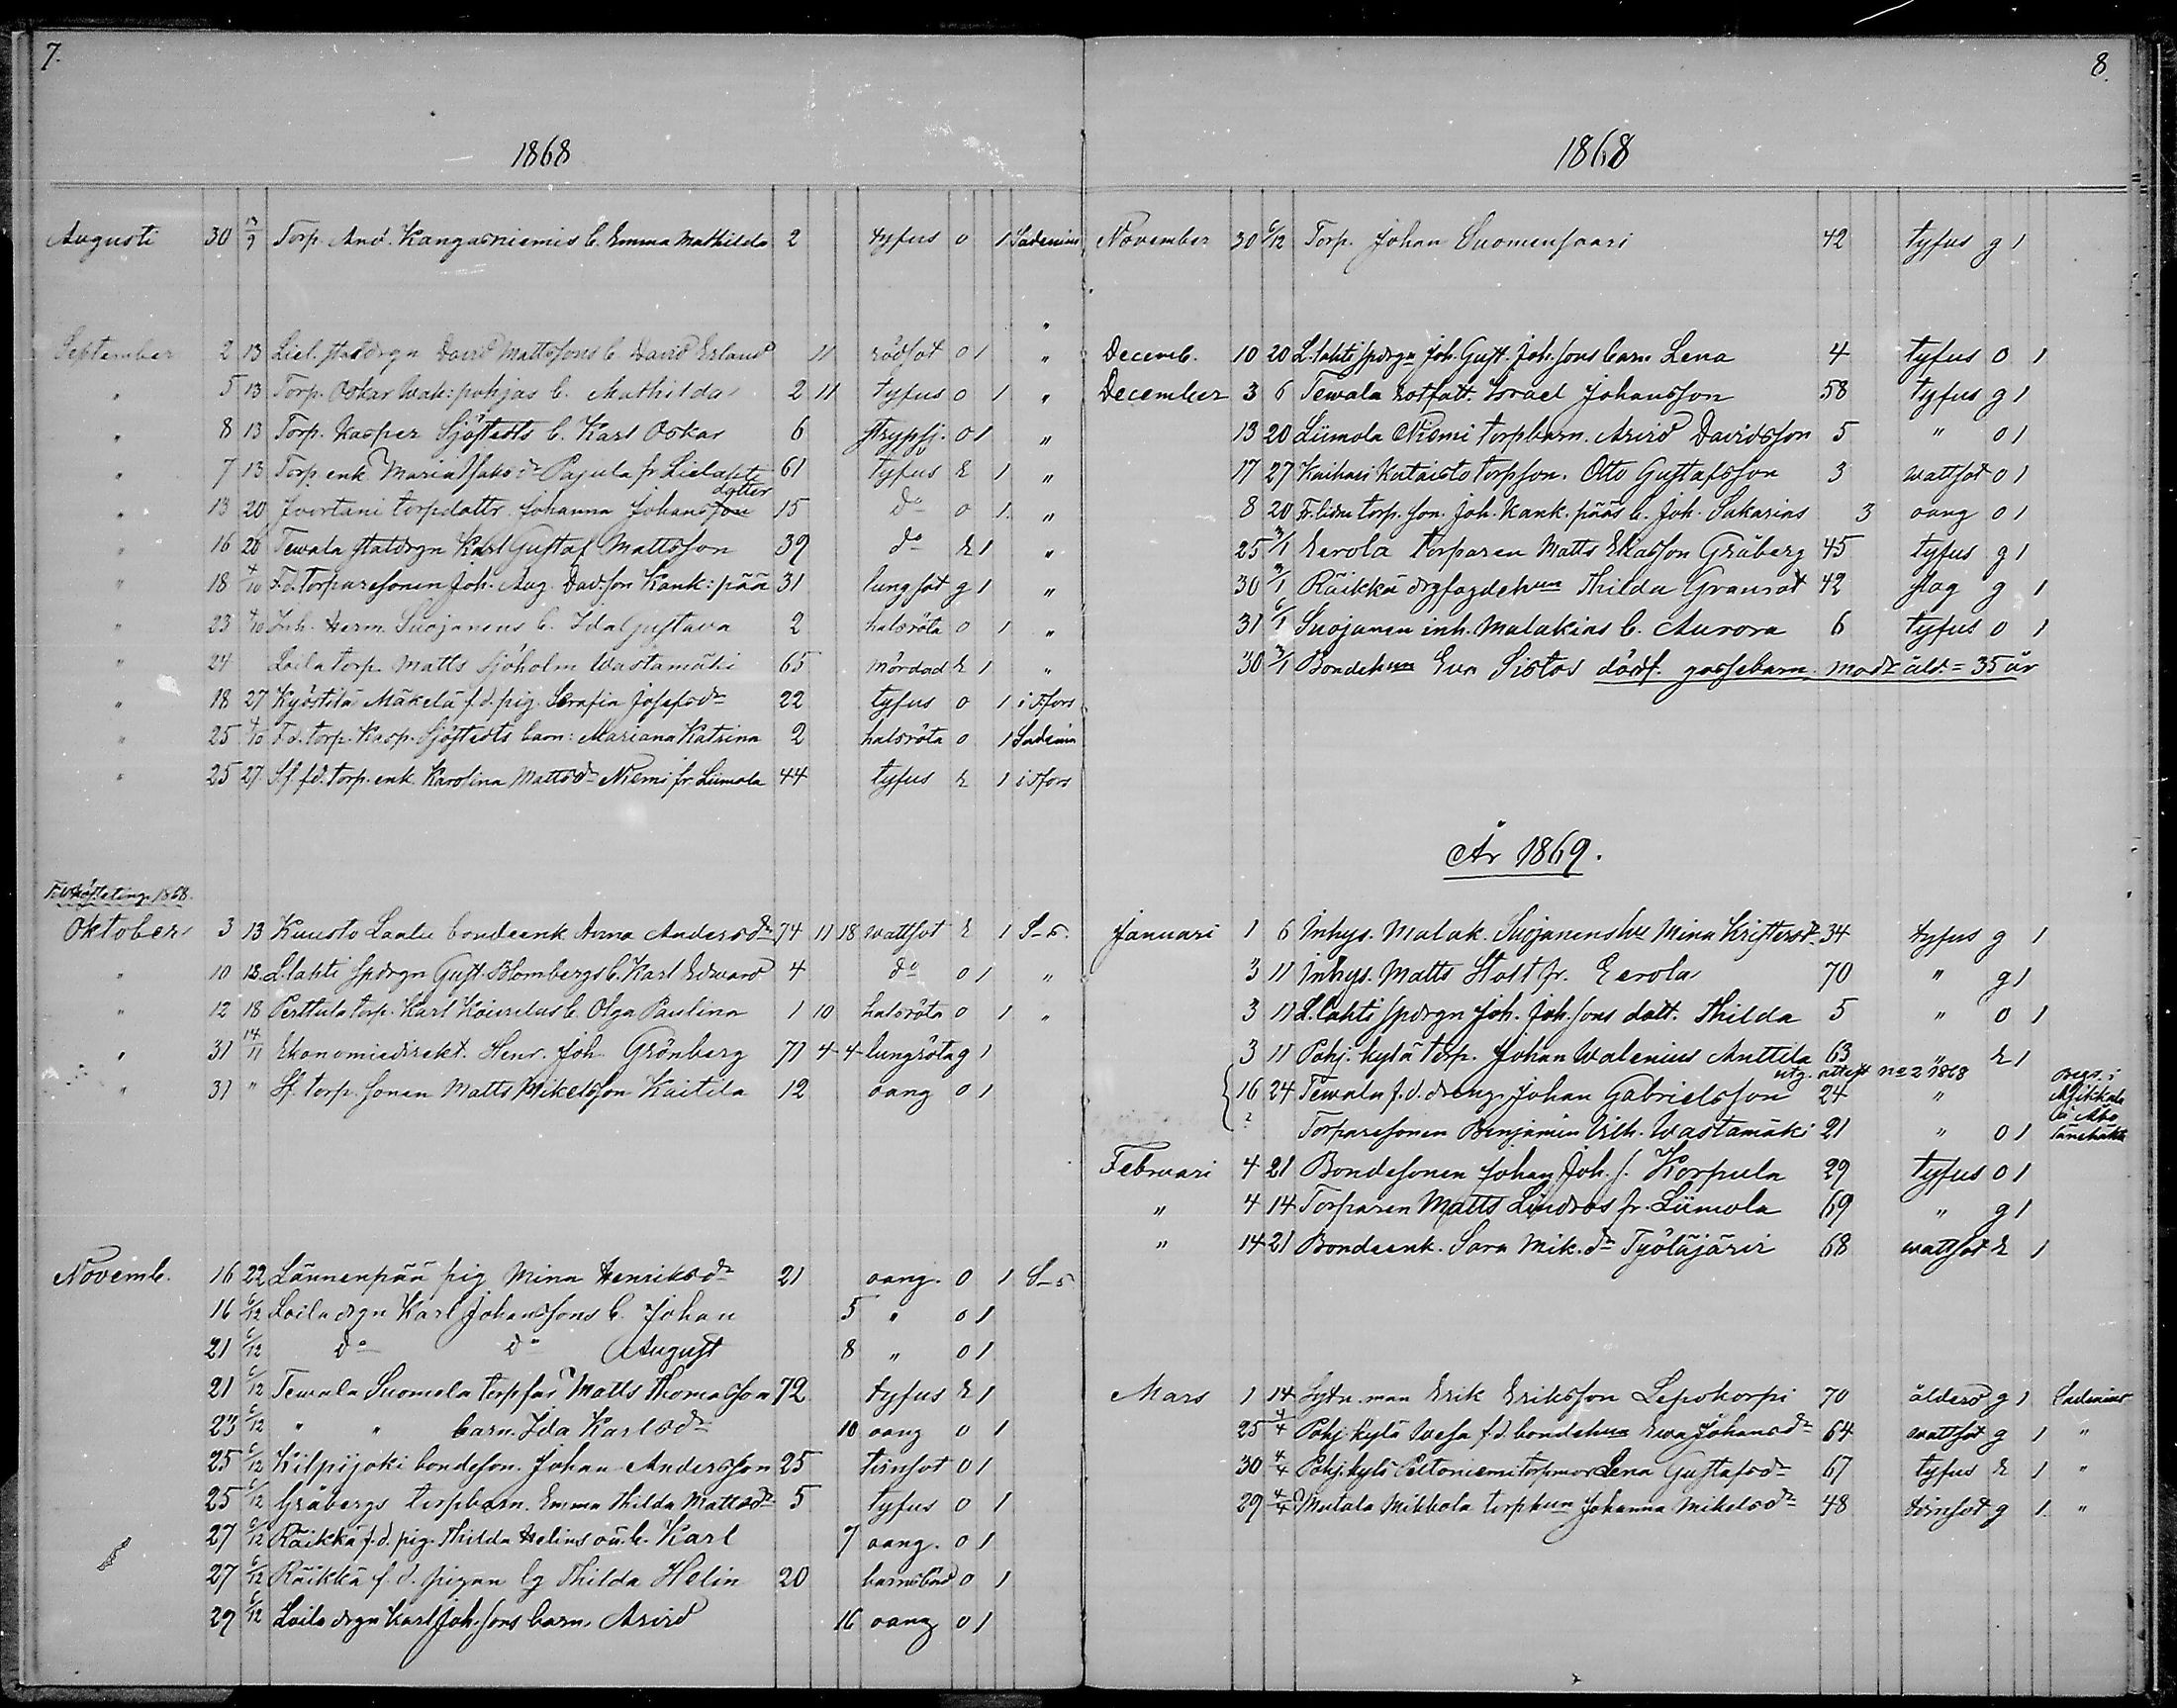 7.
1868
Augusti 30 13/9 Torp. And. Kangasniemis b. Emma Mathilda 2 tyfus o 1 Sadenius
"
September 2 13 Liel. statdrgn David Mattssons b. David Erland 11 rödsot o 1 "
" 5 13 Torp. Oskar Wak:pohjas b. Mathilda 2 11 tyfus o 1 "
" 8 13 Torp. Kasper Sjöstedts b. Karl Oskar 6 strypsj. o 1 "
" 7 13 Torp enk Maria Jakobsdr Pajula fr. Lielahti 61 tyfus E 1 "
dotter
" 13 20 Juortani torpdottr. Johanna Johansson 15 do o 1 "
" 16 20 Tewala statdrgn Karl Gustaf Mattsson 39 do E 1 "
" 18 4/10 F.d. torparesonen Joh. Aug. Davidson Kank:pää 31 lungsot g 1 "
" 23 4/10 Inh. Herm. Suojanens b. Ida Gustava 2 halsröta o 1 "
" 24 Loila torp. Matts Sjöholm Wastamäki 65 mördad E 1 "
" 18 27 Kyöstilä Mäkelä f.d. pig. Serafia Josefsdr 22 tyfus o 1 i Tfors
" 25 4/10 F.d. torp. Kasp. Sjöstedts barn: Mariana Katrina 2 halsröta o 1 Sadenius
" 25 27 Sf. f.d. torp. enk. Karolina Mattsdr Niemi fr. Liimola 44 tyfus E 1 i Tfors
1868.
Oktober 3 13 Kuusto Laalu bondeenk Anna Andersdr 74 11 18 wattsot E 1 S-s.
" 10 18 L.lahti spdrgn Gust. Blombergs b. Karl Edward 4 do o 1 "
" 12 18 Perttula torp. Karl Koivulus b. Olga Paulina 1 10 halsröta o 1 "
" 31 14/11 Ekonomiedirekt. Henr. Joh Grönberg 71 4 4 lungröta g 1
" 31 " Sf. torp. sonen Matts Mikelsson Kaitila 12 oang o 1
Novemb. 16 22 Lännenpää pig Mina Henriksdr 21 oang. o 1 S-s
16 6/12 Loila drgn Karl Johanssons b. Johan 5 " o 1
21 6/12 do do August 8 " o 1
21 6/12 Tewala Suomela torpfar Matts Thomasson 72 tyfus E 1
23 6/12 " " barn. Ida Karlsdr 10 oang o 1
25 6/12 Kilpijoki bondeson. Johan Andersson 25 tvinsot o 1
25 6/12 Gråbergs torpbarn. Emma Thilda Mattsdr 5 tyfus o 1
27 6/12 Räikkä f.d. pig. Thilda Helins oä. b. Karl 7 oang. o 1
27 6/12 Räikkä f.d. pigan lg Thilda Helin 20 barnsbörd o 1
29 6/12 Loila drgn Karl Joh.sons barn, Arvid 16 oang o 1
8.
1868
November 30 6/12 Torp. Johan Suomensaari 42 tyfus g 1
Decemb. 10 20 L.lahti spdrgn Joh. Gust. Joh.sons barn Lena 4 tyfus o 1
December 3 6 Tewala rotfatt. Israel Johansson 58 tyfus g 1
13 20 Liimola Niemi torpbarn. Arvid Davidsson 5 " o 1
17 27 Kaihari Kataisto torpson. Otto Gustafsson 3 wattsot o 1
8 20 torp. son. Joh. Kank. pääs b. Joh. Sakarias 3 oang o 1
25 3/1 Eerola torparen Matts Eliasson Gråberg 45 tyfus g 1
30 3/1 Räikkä drgfogdehun Thilda Granrot 42 slag g 1
31 6/1 Suojanen inh. Malakias b. Aurora 6 tyfus o 1
30 3/1 Bondehun Eva Sistos dödf. gossebarn. modr åld. = 35 år
År 1869.
Januari 1 6 Inhys. Malak. Suojanens hu Mina Kristersdr 34 tyfus g 1
3 11 Inhys. Matts Stolt fr. Eerola 70 " g 1
3 11 L.lahti spdrgn Joh. Joh.sons dott. Thilda 5 " o 1
3 11 Pohj. kylä torp. Johan Walenius Anttila 63 " E 1
utg. attest no 2 1868
16 24 Tewala f.d. dreng Johan Gabrielsson 24 "
Torparesonen Benjamin Vilh. Wastamäki 21 " o 1
Februari 4 21 Bondesonen Johan Joh. s. Korpula 29 tyfus o 1
" 4 14 Torparen Matts Lindros fr. Liimola 69 " g 1
" 14 21 Bondeenk. Sara Mik. dr Työläjärvi 68 wattsot E 1
Mars 1 14 Sytn. man Erik Eriksson Lepokorpi 70 ålderd g 1 Sadenius
25 4/4 Pohj. kylä Uvesa f.d. bondehun Ewa Johansdr 64 wattsot g 1 "
30 4/4 Pohj. kylä Peltoniemi torpmor Lena Gustafsdr 67 tyfus E 1 "
29 4/4 Mutala Mikkola torphun Johanna Mikelsdr 48 tvinsot g 1 "